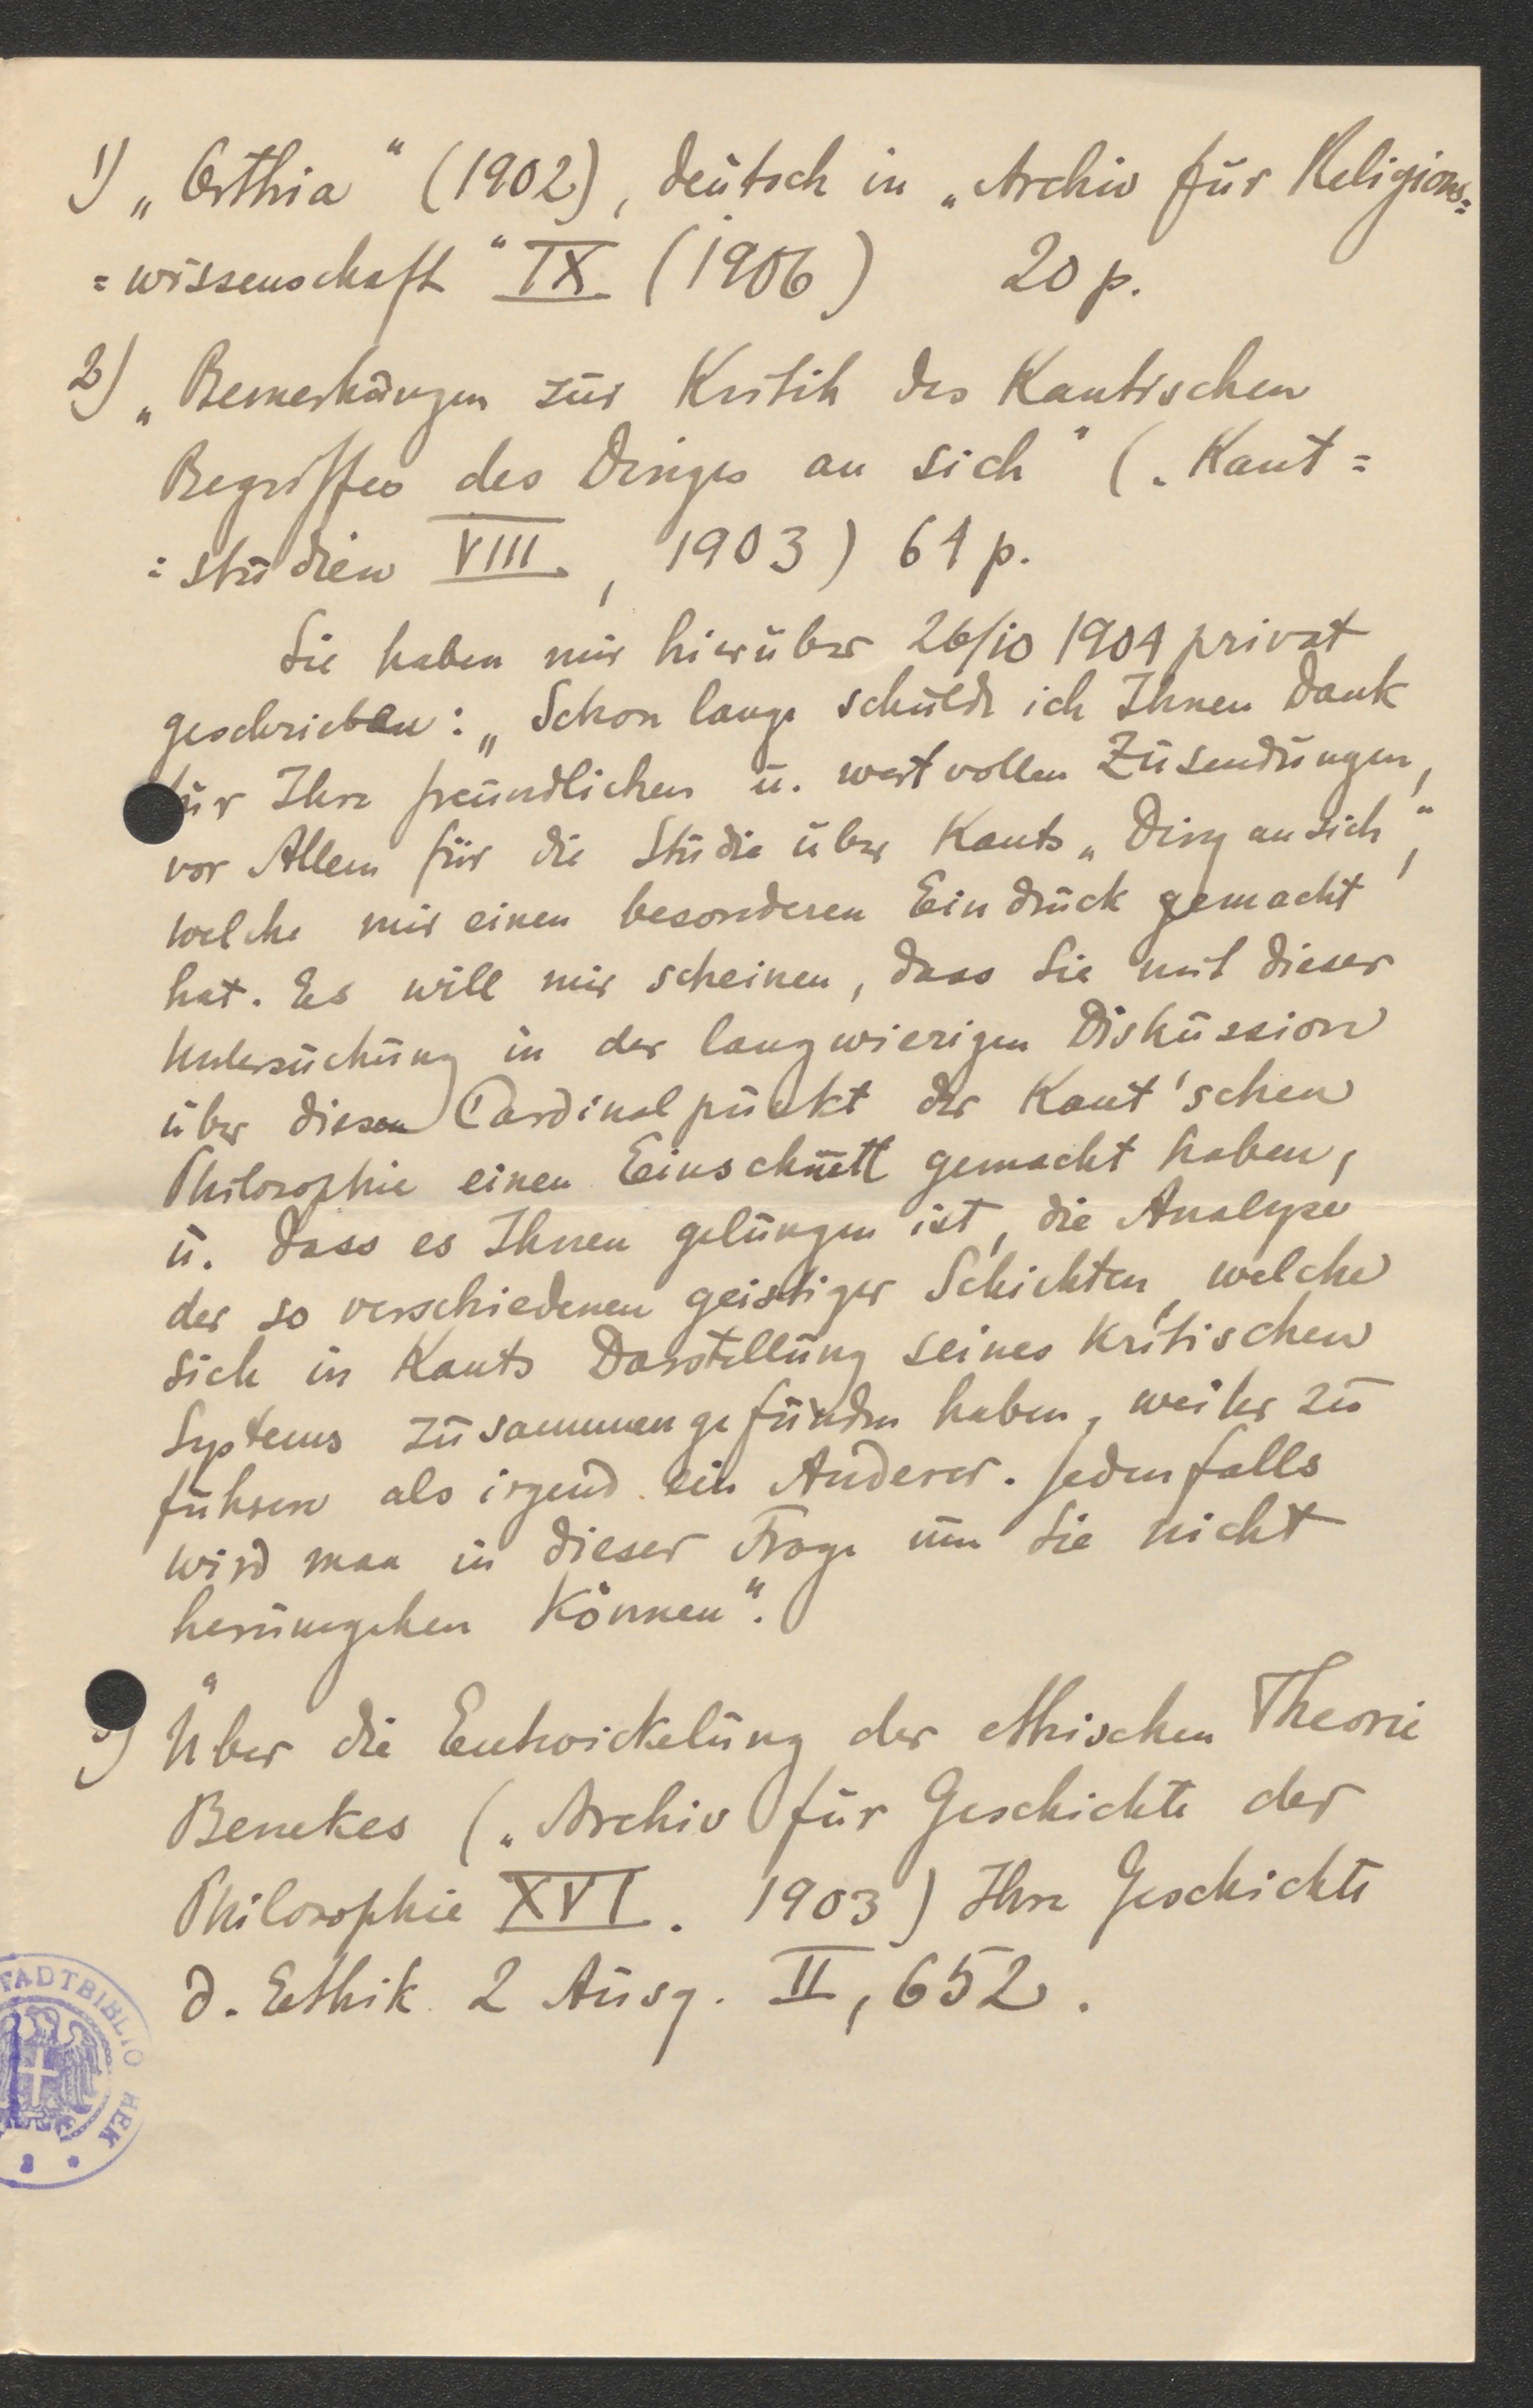 1) „Orthia“ (1902), deutsch in „Archiv für Religions=
=wissenschaft“ IX (1906) 20 p.
2) „Bemerkungen zur Kritik des Kantischen
Begriffes des Dinges an sich“ („Kant=
=studien VIII., 1903) 64 p.
Sie haben mir hierüber 26/10 1904 privat
geschrieben: „Schon lange schulde ich Ihnen Dank
für Ihre freundlichen u. wertvollen Zusendungen,
vor Allem für die Studie über Kants „Ding an sich“,
welche mir einen besonderen Eindruck gemacht
hat. Es will mir scheinen, dass Sie mit dieser
Untersuchung in der langwierigen Diskussion
über diesen Cardinalpunkt der Kant'schen
Philosophie einen Einschnitt gemacht haben,
u. dass es Ihnen gelungen ist, die Analyse
der so verschiedenen geistiger Schichten, welche
sich in Kants Darstellung seines kritischen
Systems zusammengefunden haben, weiter zu
führen als irgend ein Anderer. Jedenfalls
wird man in dieser Frage um Sie nicht
herumgehen können“.
3) „Über die Entwickelung der ethischen Theorie
Benekes („Archiv für Geschichte der
Philosophie XVI. 1903) Ihre Geschichte
d. Ethik 2 Ausg. II, 652.
STADTBIBLIOTHEK